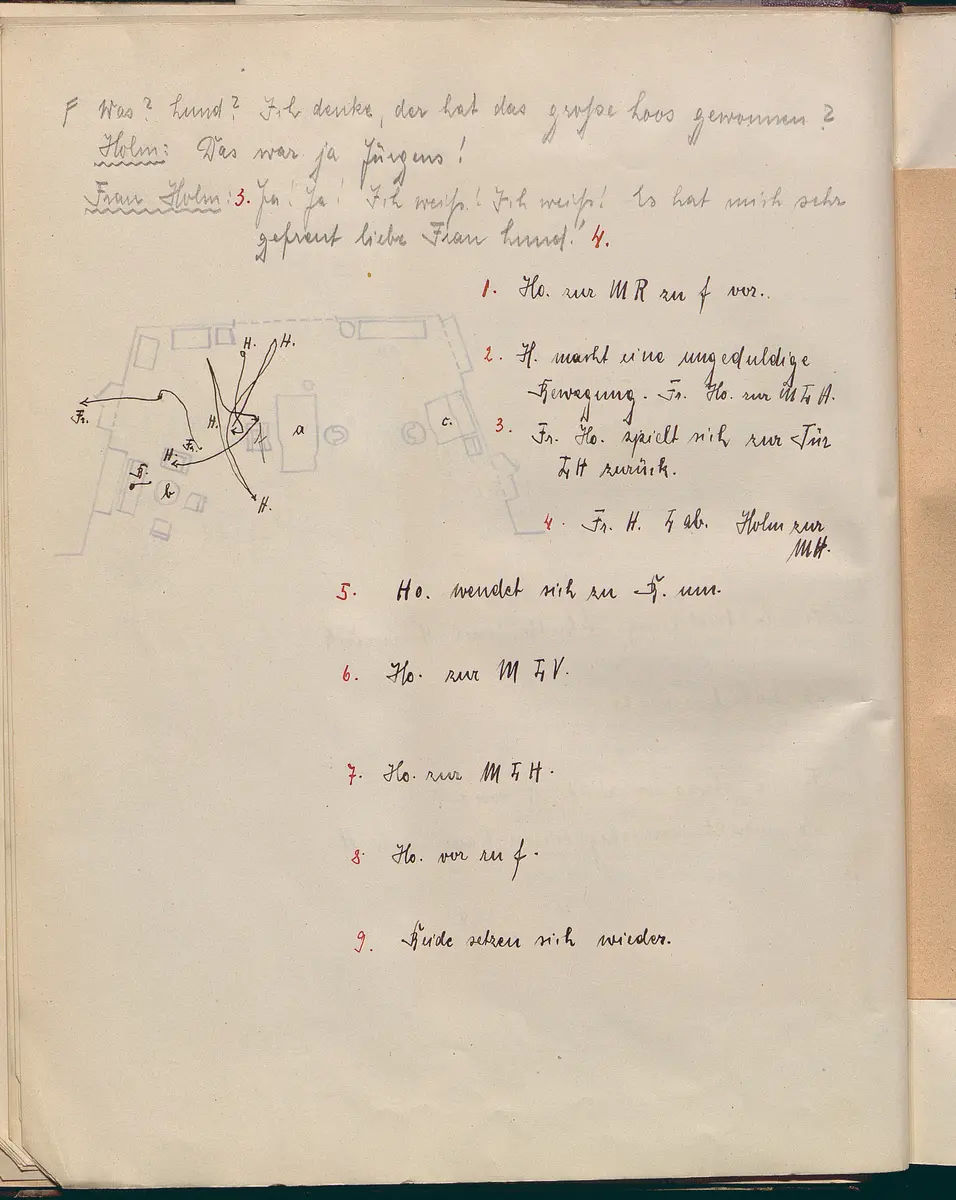 F Was? Lund? Ich denke, der hat das große Loos gewonnen?
Holm: Das war ja Jürgens!
Frau Holm: 3. Ja! Ja! Ich weiß! Ich weiß! Es hat mich sehr
gefreut liebe Frau Lund! 4.
1. Ho. zur M R zu f vor.
2. H. macht eine ungeduldige
Bewegung. Fr. Ho. zur M L H.
3. Fr. Ho. spielt sich zur Tür
L H zurück.
4. Fr. H. L ab. Holm zur
MH.
H. H.
Fr. H. Fr. H. B. b a c.
H.
5. Ho. wendet sich zu B. um.
6. Ho. zur M L V.
7. Ho. zur M L H.
8. Ho. vor zu f.
9. Beide setzen sich wieder.